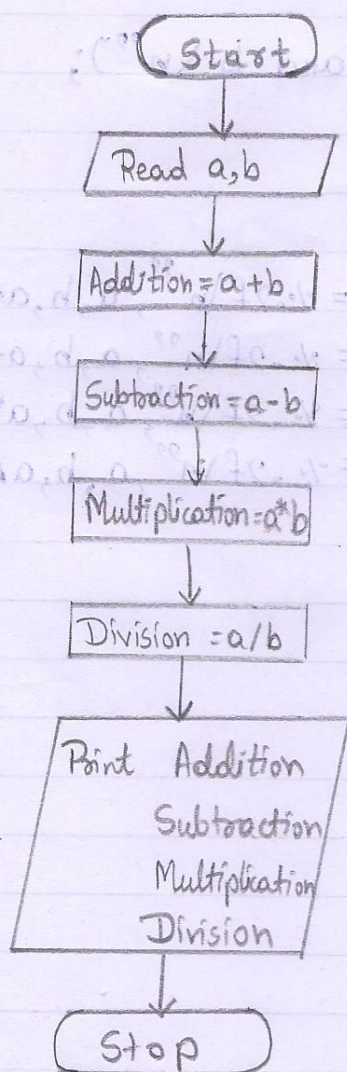 Start
Read a,b
Addition = a + b
Subtraction = a - b
Multiplication = a * b
Division = a / b
Print Addition
Subtraction
Multiplication
Division
Stop